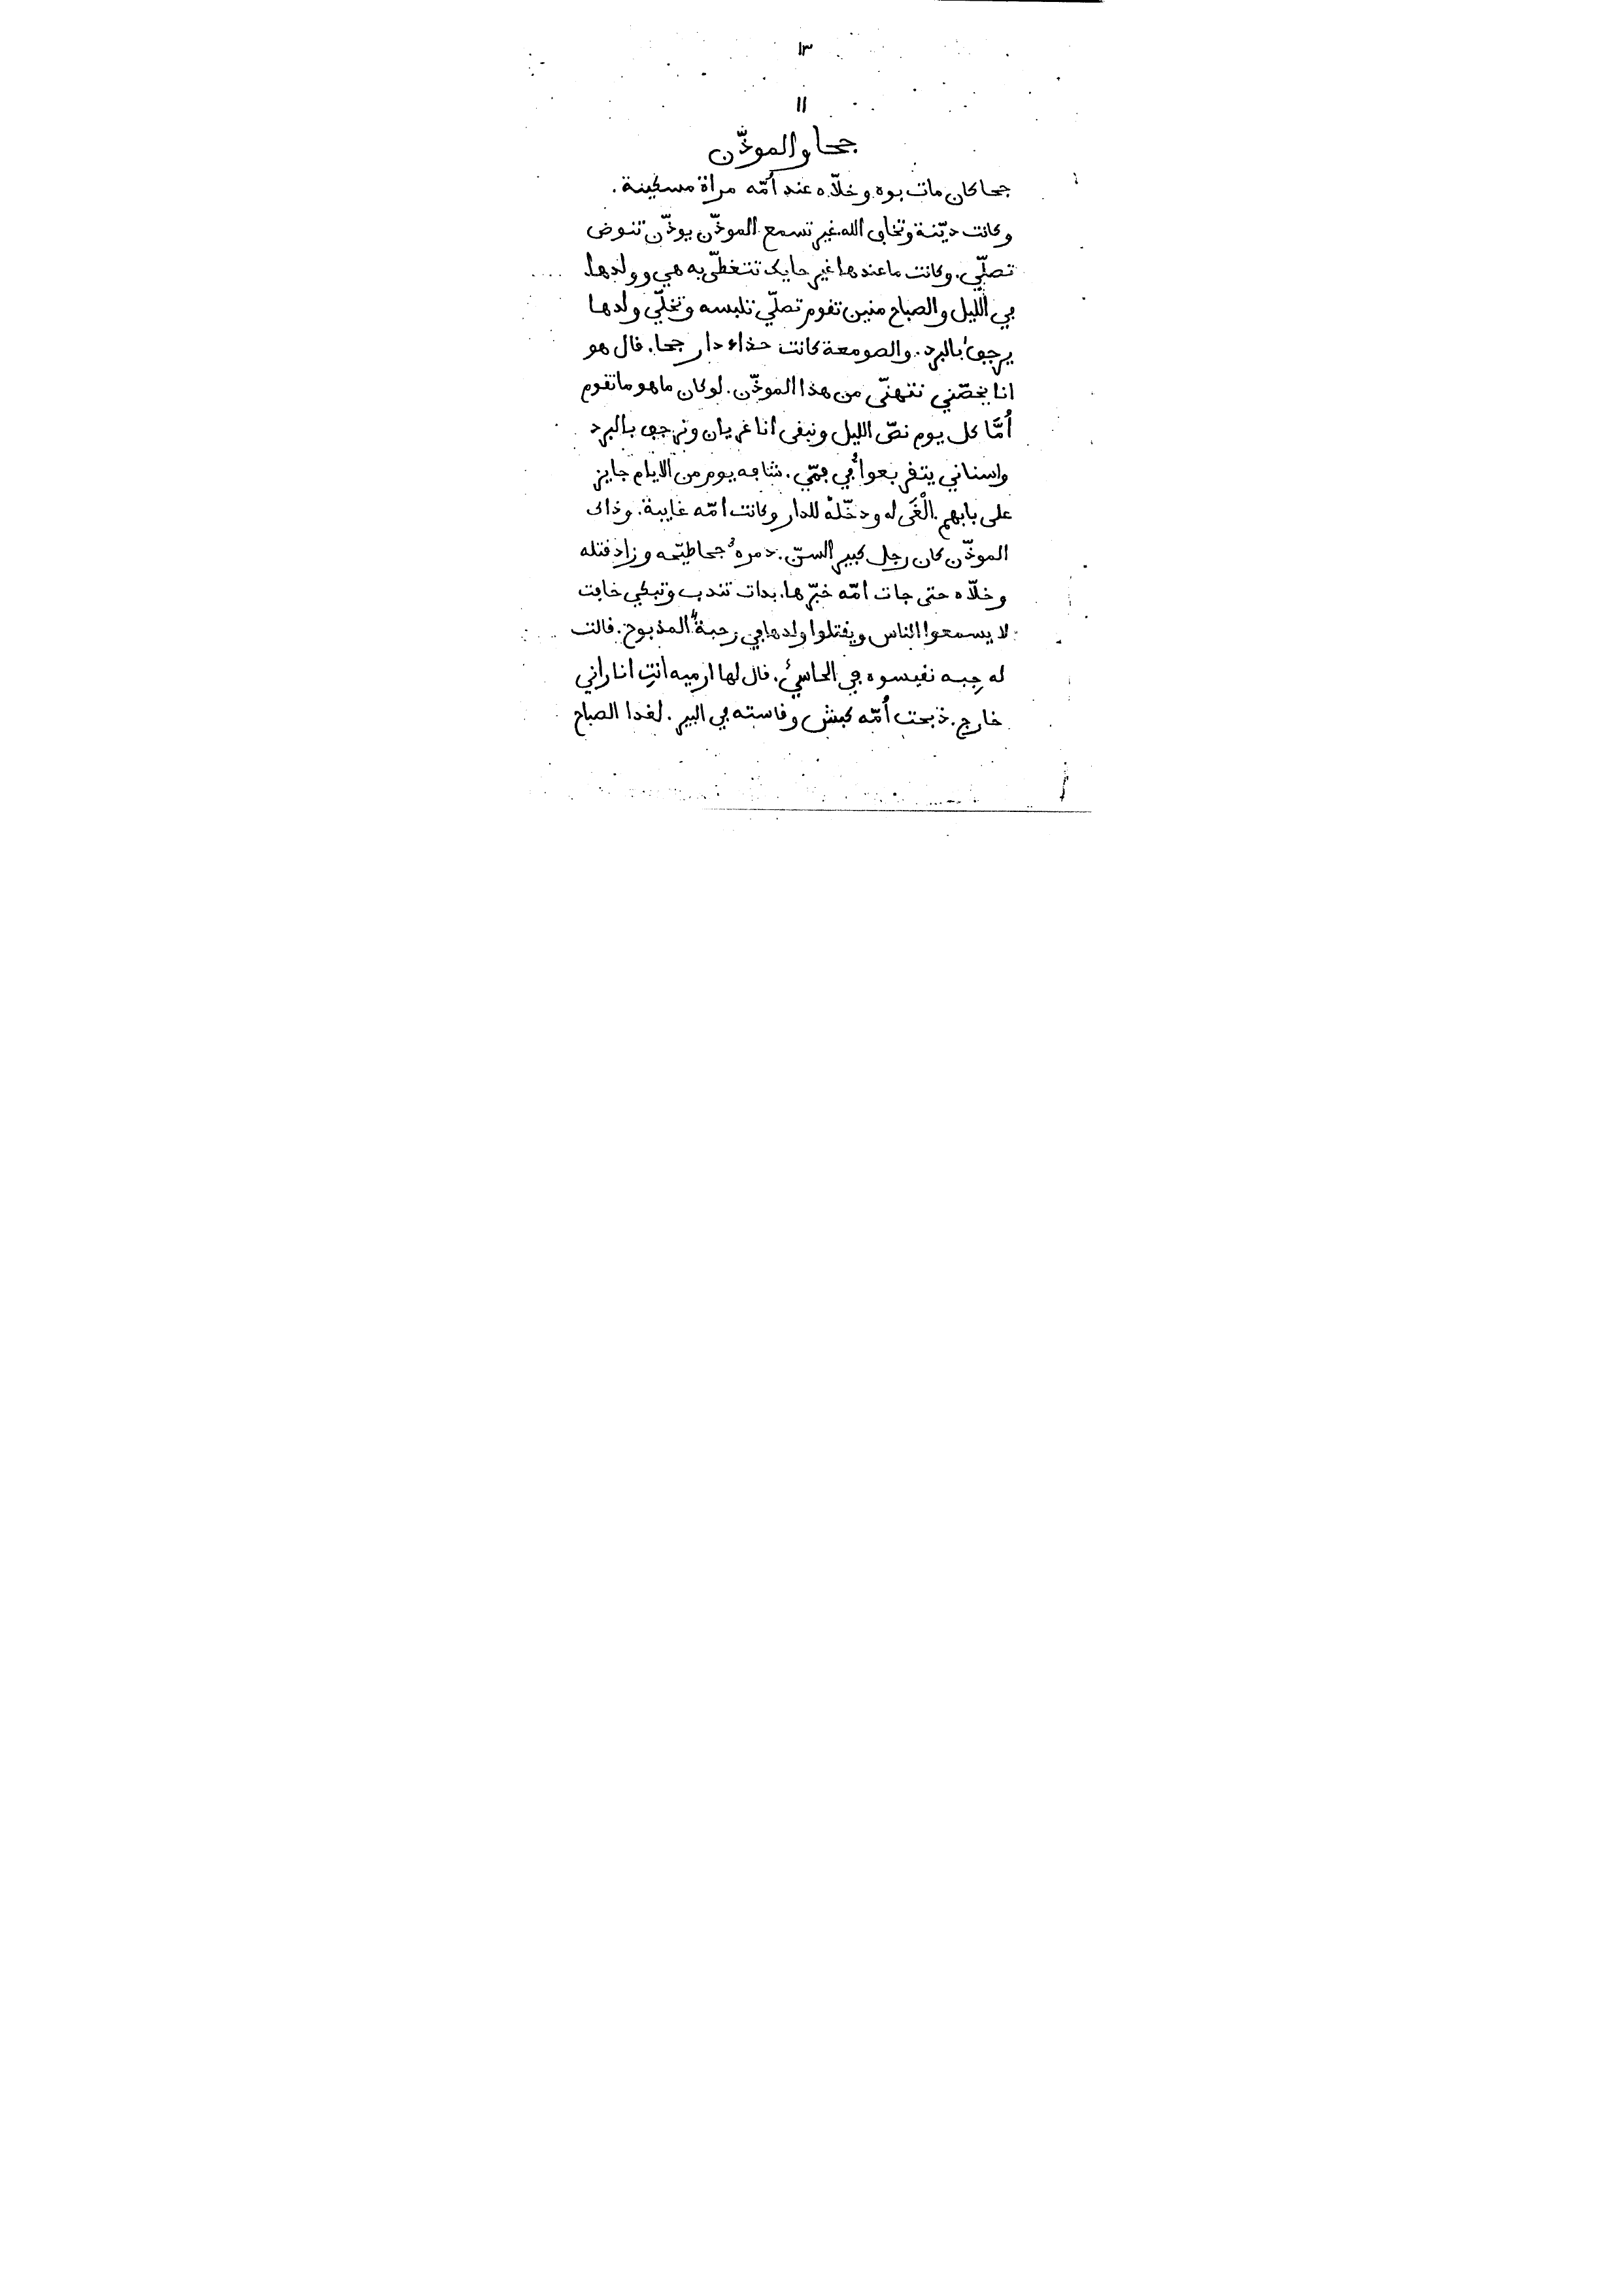 ١٣
١١
جحا والموذّن
جحا كان مات بوه وخلّاه عند أمّه مراة مسكينة.
وكانت ديّنة وتخاف الله. غير تسمع الموذّن يوذّن تنوض
تصلّي. وكانت ما عندها غير حايك تتغطّى به هي وولدها
في الليل والصباح منين تقوم تصلّي تلبسه وتخلّي ولدها
يرجف بالبرد. والصومعة كانت حذاء دار جحا. قال هو
انا يخصّني نتهنّى من هذا الموذّن. لوكان ما هو ما تقوم
أمَّا كل يوم نصّ الليل ونبقى انا عريان ونرجف بالبرد
واسناني يتقربعوا في فمّي. شافه يوم من الايام جايز
على بابهم. الْغَى له ودخّله للدار وكانت امّه غايبة. وذاك
الموذّن كان رجل كبير السنّ. دمره جحا طيّحه وزاد قتله
وخلّاه حتى جات امّه خبّرها. بدات تندب وتبكي خافت
لا يسمعوا الناس ويقتلوا ولدها في رحبة المذبوح. قالت
له جِبه نقيسوه في الحاسي. قال لها ارميه انتِ انا راني
خارج. ذبحت أمّه كبش وقاسته في البير. لغدا الصباح